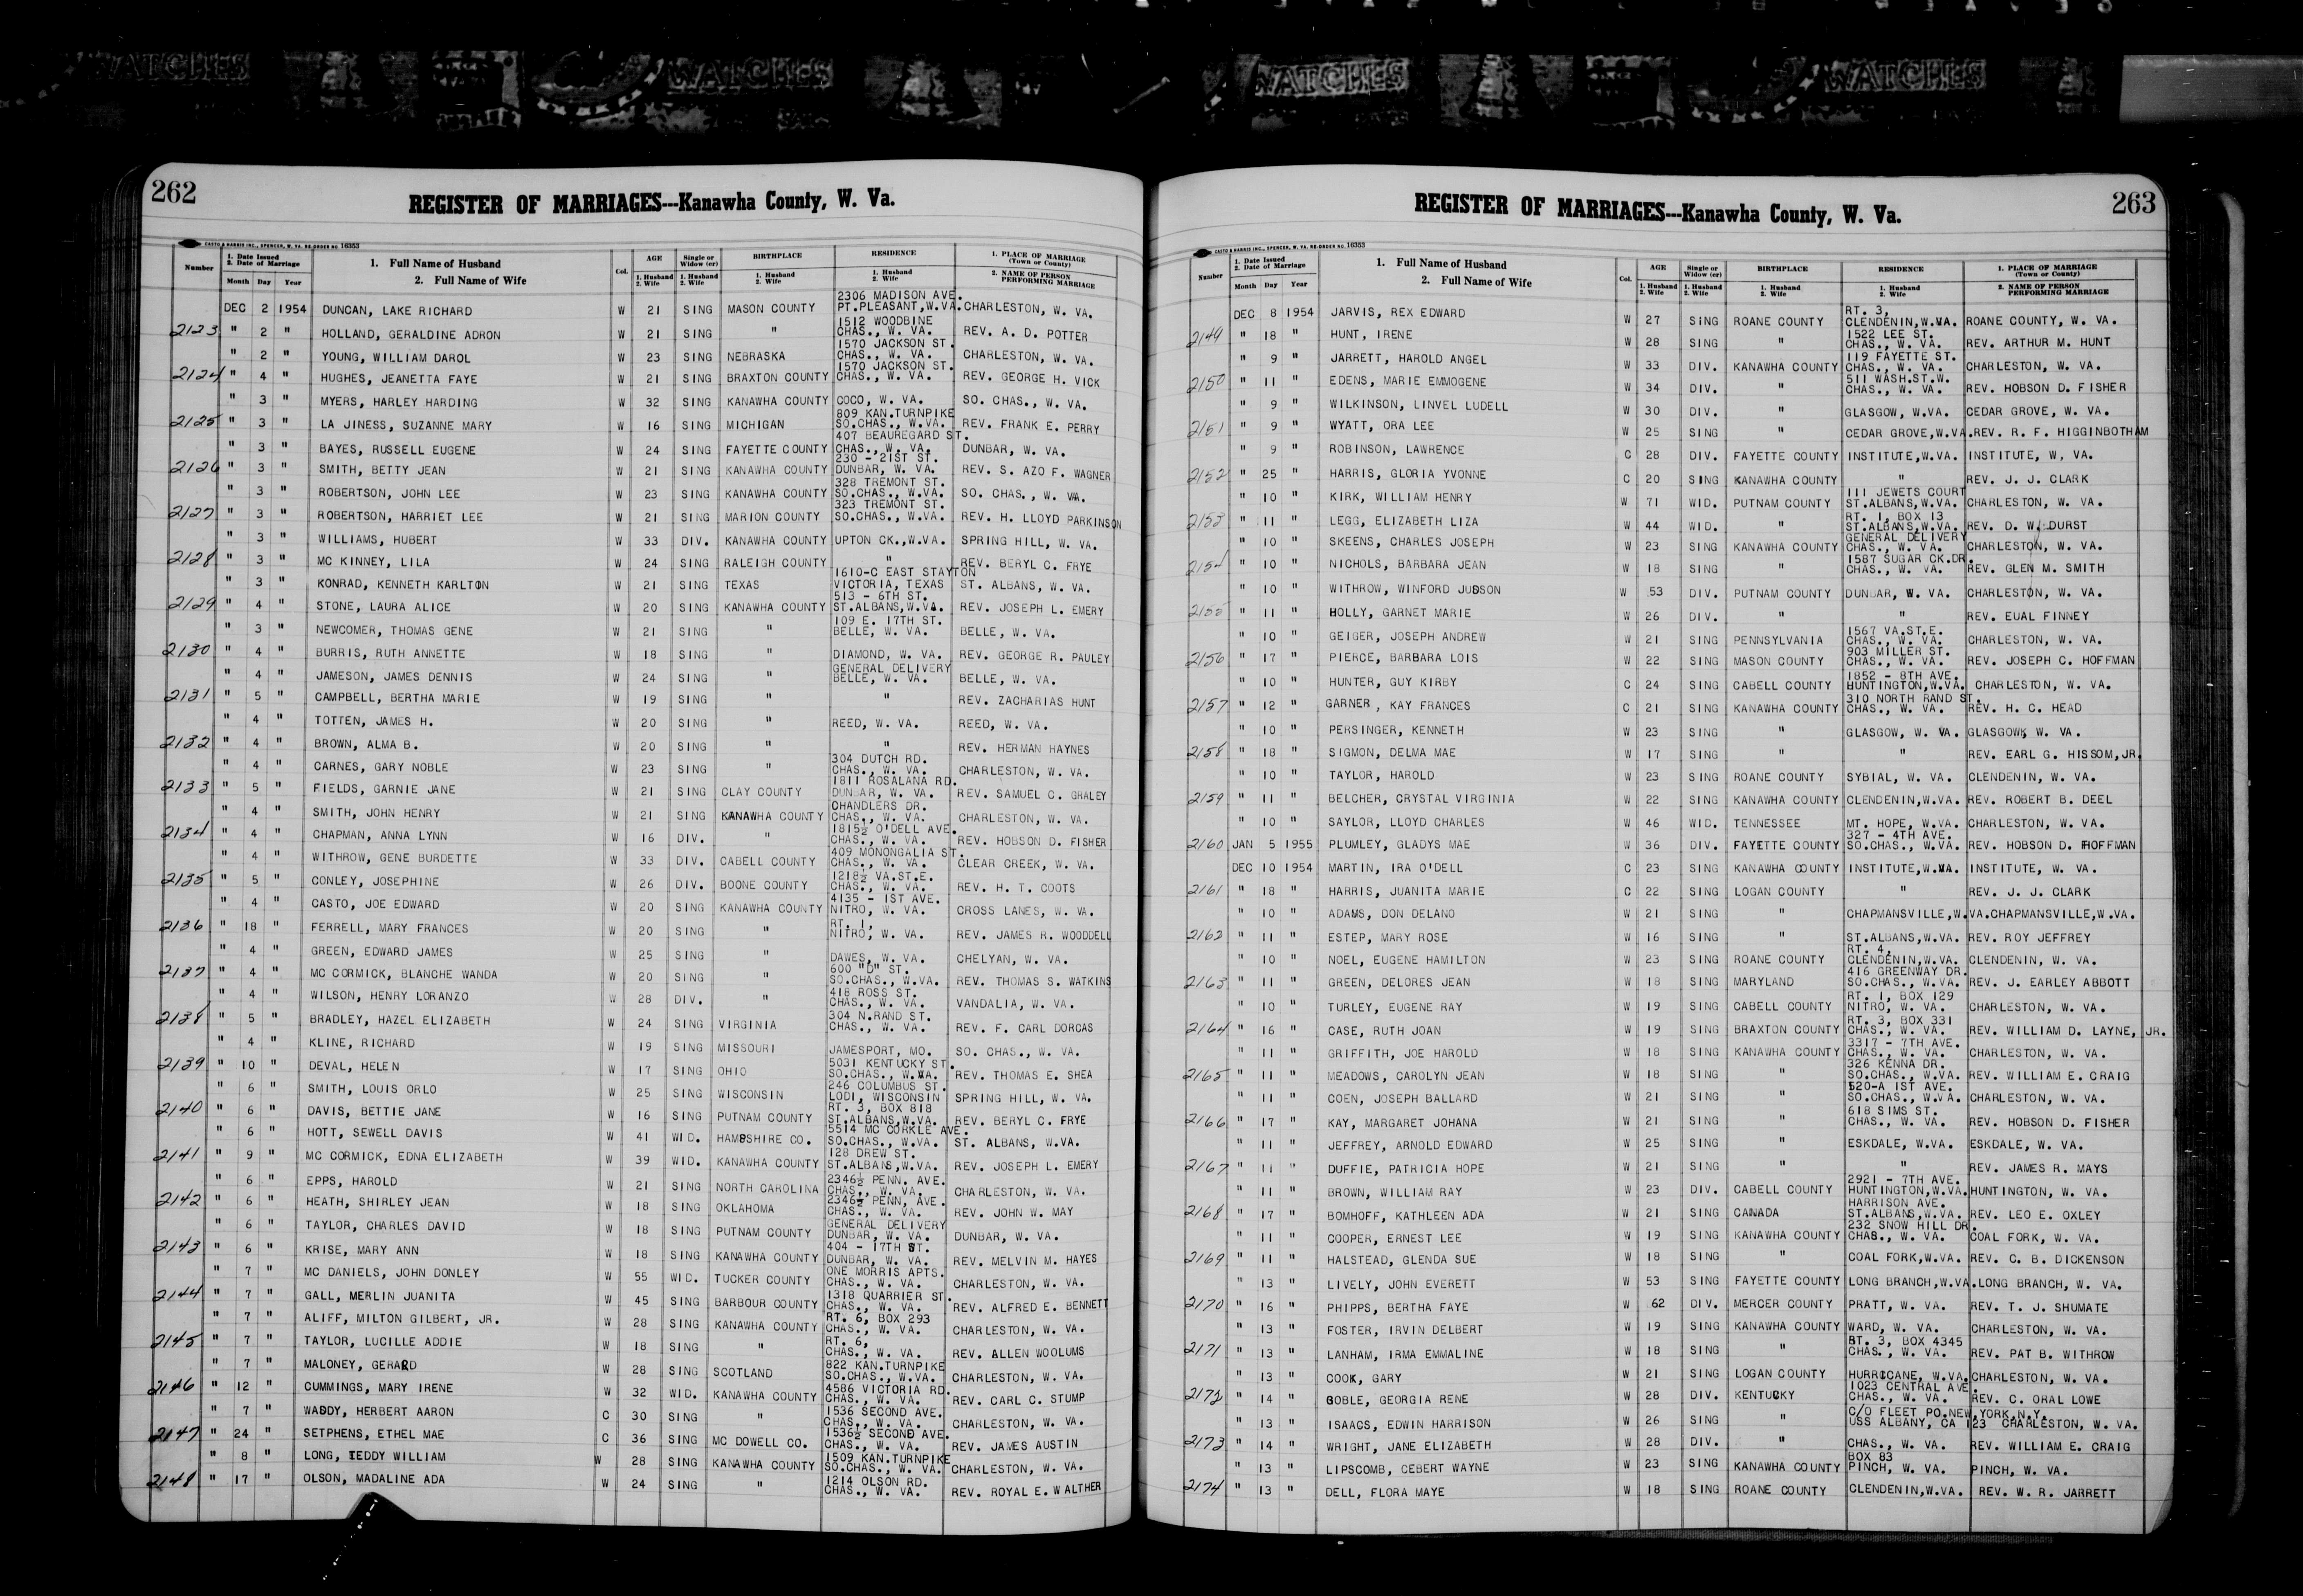 WATCHES WATCHES WATCHES WATCHES
262
REGISTER OF MARRIAGES---Kanawha County, W. Va.
CASTO & HARRIS INC., SPENCER, W. VA. RE-ORDER NO. 16353
Number | 1. Date Issued 2. Date of Marriage | 1. Full Name of Husband 2. Full Name of Wife | Col. | AGE | Single or Widow (er) | BIRTHPLACE | RESIDENCE | 1. PLACE OF MARRIAGE (Town or County) 2. NAME OF PERSON PERFORMING MARRIAGE
Month Day Year | 1. Husband 2. Wife | 1. Husband 2. Wife | 1. Husband 2. Wife | 1. Husband 2. Wife
DEC 2 1954 DUNCAN, LAKE RICHARD W 21 SING MASON COUNTY 2306 MADISON AVE. PT.PLEASANT,W.VA. CHARLESTON, W. VA.
2123 " 2 " HOLLAND, GERALDINE ADRON W 21 SING " 1512 WOODBINE CHAS., W. VA. REV. A. D. POTTER
" 2 " YOUNG, WILLIAM DAROL W 23 SING NEBRASKA 1570 JACKSON ST. CHAS., W. VA. CHARLESTON, W. VA.
2124 " 4 " HUGHES, JEANETTA FAYE W 21 SING BRAXTON COUNTY 1570 JACKSON ST. CHAS., W. VA. REV. GEORGE H. VICK
" 3 " MYERS, HARLEY HARDING W 32 SING KANAWHA COUNTY COCO, W. VA. SO. CHAS., W. VA.
2125 " 3 " LA JINESS, SUZANNE MARY W 16 SING MICHIGAN 809 KAN.TURNPIKE SO.CHAS., W.VA. REV. FRANK E. PERRY
" 3 " BAYES, RUSSELL EUGENE W 24 SING FAYETTE COUNTY 407 BEAUREGARD ST. CHAS., W. VA. DUNBAR, W. VA.
2126 " 3 " SMITH, BETTY JEAN W 21 SING KANAWHA COUNTY 230 - 21ST ST. DUNBAR, W. VA. REV. S. AZO F. WAGNER
" 3 " ROBERTSON, JOHN LEE W 23 SING KANAWHA COUNTY 328 TREMONT ST. SO.CHAS., W.VA. SO. CHAS., W. VA.
2127 " 3 " ROBERTSON, HARRIET LEE W 21 SING MARION COUNTY 323 TREMONT ST. SO.CHAS., W.VA. REV. H. LLOYD PARKINSON
" 3 " WILLIAMS, HUBERT W 33 DIV. KANAWHA COUNTY UPTON CK.,W.VA. SPRING HILL, W. VA.
2128 " 3 " MC KINNEY, LILA W 24 SING RALEIGH COUNTY " REV. BERYL C. FRYE
" 3 " KONRAD, KENNETH KARLTON W 21 SING TEXAS 1610-C EAST STAYTON VICTORIA, TEXAS ST. ALBANS, W. VA.
2129 " 4 " STONE, LAURA ALICE W 20 SING KANAWHA COUNTY 513 - 6TH ST. ST.ALBANS,W.VA. REV. JOSEPH L. EMERY
" 3 " NEWCOMER, THOMAS GENE W 21 SING " 109 E. 17TH ST. BELLE, W. VA. BELLE, W. VA.
2130 " 4 " BURRIS, RUTH ANNETTE W 18 SING " DIAMOND, W. VA. REV. GEORGE R. PAULEY
" 4 " JAMESON, JAMES DENNIS W 24 SING " GENERAL DELIVERY BELLE, W. VA. BELLE, W. VA.
2131 " 5 " CAMPBELL, BERTHA MARIE W 19 SING " " REV. ZACHARIAS HUNT
" 4 " TOTTEN, JAMES H. W 20 SING " REED, W. VA. REED, W. VA.
2132 " 4 " BROWN, ALMA B. W 20 SING " " REV. HERMAN HAYNES
" 4 " CARNES, GARY NOBLE W 23 SING " 304 DUTCH RD. CHAS., W. VA. CHARLESTON, W. VA.
2133 " 5 " FIELDS, GARNIE JANE W 21 SING CLAY COUNTY 1811 ROSALANA RD. DUNBAR, W. VA. REV. SAMUEL C. GRALEY
" 4 " SMITH, JOHN HENRY W 21 SING KANAWHA COUNTY CHANDLERS DR. CHAS., W. VA. CHARLESTON, W. VA.
2134 " 4 " CHAPMAN, ANNA LYNN W 16 DIV. " 1815½ O'DELL AVE. CHAS., W. VA. REV. HOBSON D. FISHER
" 4 " WITHROW, GENE BURDETTE W 33 DIV. CABELL COUNTY 409 MONONGALIA ST. CHAS., W. VA. CLEAR CREEK, W. VA.
2135 " 5 " CONLEY, JOSEPHINE W 26 DIV. BOONE COUNTY 1218½ VA.ST.E. CHAS., W. VA. REV. H. T. COOTS
" 4 " CASTO, JOE EDWARD W 20 SING KANAWHA COUNTY 4135 - 1ST AVE. NITRO, W. VA. CROSS LANES, W. VA.
2136 " 18 " FERRELL, MARY FRANCES W 20 SING " RT. 1, NITRO, W. VA. REV. JAMES R. WOODDELL
" 4 " GREEN, EDWARD JAMES W 25 SING " DAWES, W. VA. CHELYAN, W. VA.
2137 " 4 " MC CORMICK, BLANCHE WANDA W 20 SING " 600 "D" ST. SO.CHAS., W.VA. REV. THOMAS S. WATKINS
" 4 " WILSON, HENRY LORANZO W 28 DIV. " 418 ROSS ST. CHAS., W. VA. VANDALIA, W. VA.
2138 " 5 " BRADLEY, HAZEL ELIZABETH W 24 SING VIRGINIA 304 N.RAND ST. CHAS., W. VA. REV. F. CARL DORCAS
" 4 " KLINE, RICHARD W 19 SING MISSOURI JAMESPORT, MO. SO. CHAS., W. VA.
2139 " 10 " DEVAL, HELEN W 17 SING OHIO 5031 KENTUCKY ST. SO.CHAS., W.VA. REV. THOMAS E. SHEA
" 6 " SMITH, LOUIS ORLO W 25 SING WISCONSIN 246 COLUMBUS ST. LODI, WISCONSIN SPRING HILL, W. VA.
2140 " 6 " DAVIS, BETTIE JANE W 16 SING PUTNAM COUNTY RT. 3, BOX 818 ST.ALBANS,W.VA. REV. BERYL C. FRYE
" 6 " HOTT, SEWELL DAVIS W 41 WID. HAMPSHIRE CO. 5514 MC CORKLE AVE. SO.CHAS., W.VA. ST. ALBANS, W.VA.
2141 " 9 " MC CORMICK, EDNA ELIZABETH W 39 WID. KANAWHA COUNTY 128 DREW ST. ST.ALBANS,W.VA. REV. JOSEPH L. EMERY
" 6 " EPPS, HAROLD W 21 SING NORTH CAROLINA 2346½ PENN. AVE. CHAS., W. VA. CHARLESTON, W. VA.
2142 " 6 " HEATH, SHIRLEY JEAN W 18 SING OKLAHOMA 2346½ PENN, AVE. CHAS., W. VA. REV. JOHN W. MAY
" 6 " TAYLOR, CHARLES DAVID W 18 SING PUTNAM COUNTY GENERAL DELIVERY DUNBAR, W. VA. DUNBAR, W. VA.
2143 " 6 " KRISE, MARY ANN W 18 SING KANAWHA COUNTY 404 - 17TH ST. DUNBAR, W. VA. REV. MELVIN M. HAYES
" 7 " MC DANIELS, JOHN DONLEY W 55 WID. TUCKER COUNTY ONE MORRIS APTS. CHAS., W. VA. CHARLESTON, W. VA.
2144 " 7 " GALL, MERLIN JUANITA W 45 SING BARBOUR COUNTY 1318 QUARRIER ST. CHAS., W. VA. REV. ALFRED E. BENNETT
" 7 " ALIFF, MILTON GILBERT, JR. W 28 SING KANAWHA COUNTY RT. 6, BOX 293 CHAS., W. VA. CHARLESTON, W. VA.
2145 " 7 " TAYLOR, LUCILLE ADDIE W 18 SING " RT. 6, CHAS., W. VA. REV. ALLEN WOOLUMS
" 7 " MALONEY, GERARD W 28 SING SCOTLAND 822 KAN.TURNPIKE SO.CHAS., W.VA. CHARLESTON, W. VA.
2146 " 12 " CUMMINGS, MARY IRENE W 32 WID. KANAWHA COUNTY 4586 VICTORIA RD. CHAS., W. VA. REV. CARL C. STUMP
" 7 " WADDY, HERBERT AARON C 30 SING " 1536 SECOND AVE. CHAS., W. VA. CHARLESTON, W. VA.
2147 " 24 " SETPHENS, ETHEL MAE C 36 SING MC DOWELL CO. 1536½ SECOND AVE. CHAS., W. VA. REV. JAMES AUSTIN
" 8 " LONG, TEDDY WILLIAM W 28 SING KANAWHA COUNTY 1509 KAN.TURNPIKE SO.CHAS., W. VA. CHARLESTON, W. VA.
2148 " 17 " OLSON, MADALINE ADA W 24 SING " 1214 OLSON RD. CHAS., W. VA. REV. ROYAL E. WALTHER
263
REGISTER OF MARRIAGES---Kanawha County, W. Va.
CASTO & HARRIS INC., SPENCER, W. VA. RE-ORDER NO. 16353
Number | 1. Date Issued 2. Date of Marriage | 1. Full Name of Husband 2. Full Name of Wife | Col. | AGE | Single or Widow (er) | BIRTHPLACE | RESIDENCE | 1. PLACE OF MARRIAGE (Town or County) 2. NAME OF PERSON PERFORMING MARRIAGE
Month Day Year | 1. Husband 2. Wife | 1. Husband 2. Wife | 1. Husband 2. Wife | 1. Husband 2. Wife
DEC 8 1954 JARVIS, REX EDWARD W 27 SING ROANE COUNTY RT. 3, CLENDENIN,W.VA. ROANE COUNTY, W. VA.
2149 " 18 " HUNT, IRENE W 28 SING " 1522 LEE ST. CHAS., W. VA. REV. ARTHUR M. HUNT
" 9 " JARRETT, HAROLD ANGEL W 33 DIV. KANAWHA COUNTY 119 FAYETTE ST. CHAS., W. VA. CHARLESTON, W. VA.
2150 " 11 " EDENS, MARIE EMMOGENE W 34 DIV. " 511 WASH.ST.W. CHAS., W. VA. REV. HOBSON D. FISHER
" 9 " WILKINSON, LINVEL LUDELL W 30 DIV. " GLASGOW, W.VA. CEDAR GROVE, W. VA.
2151 " 9 " WYATT, ORA LEE W 25 SING " CEDAR GROVE,W.VA. REV. R. F. HIGGINBOTHAM
" 9 " ROBINSON, LAWRENCE C 28 DIV. FAYETTE COUNTY INSTITUTE,W.VA. INSTITUTE, W, VA.
2152 " 25 " HARRIS, GLORIA YVONNE C 20 SING KANAWHA COUNTY " REV. J. J. CLARK
" 10 " KIRK, WILLIAM HENRY W 71 WID. PUTNAM COUNTY 111 JEWETS COURT ST.ALBANS,W.VA. CHARLESTON, W. VA.
2153 " 11 " LEGG, ELIZABETH LIZA W 44 WID. " RT. 1, BOX 13 ST.ALBANS,W.VA. REV. D. W. DURST
" 10 " SKEENS, CHARLES JOSEPH W 23 SING KANAWHA COUNTY GENERAL DELIVERY CHAS., W. VA. CHARLESTON, W. VA.
2154 " 10 " NICHOLS, BARBARA JEAN W 18 SING " 1587 SUGAR CK.DR. CHAS., W. VA. REV. GLEN M. SMITH
" 10 " WITHROW, WINFORD JUDSON W 53 DIV. PUTNAM COUNTY DUNBAR, W. VA. CHARLESTON, W. VA.
2155 " 11 " HOLLY, GARNET MARIE W 26 DIV. " " REV. EUAL FINNEY
" 10 " GEIGER, JOSEPH ANDREW W 21 SING PENNSYLVANIA 1567 VA.ST.E. CHAS., W. VA. CHARLESTON, W. VA.
2156 " 17 " PIERCE, BARBARA LOIS W 22 SING MASON COUNTY 903 MILLER ST. CHAS., W. VA. REV. JOSEPH C. HOFFMAN
" 10 " HUNTER, GUY KIRBY C 24 SING CABELL COUNTY 1852 - 8TH AVE. HUNTINGTON,W.VA. CHARLESTON, W. VA.
2157 " 12 " GARNER , KAY FRANCES C 21 SING KANAWHA COUNTY 310 NORTH RAND ST. CHAS., W. VA. REV. H. C. HEAD
" 10 " PERSINGER, KENNETH W 23 SING " GLASGOW, W. VA. GLASGOW, W. VA.
2158 " 18 " SIGMON, DELMA MAE W 17 SING " " REV. EARL G. HISSOM,JR.
" 10 " TAYLOR, HAROLD W 23 SING ROANE COUNTY SYBIAL, W. VA. CLENDENIN, W. VA.
2159 " 11 " BELCHER, CRYSTAL VIRGINIA W 22 SING KANAWHA COUNTY CLENDENIN,W.VA. REV. ROBERT B. DEEL
" 10 " SAYLOR, LLOYD CHARLES W 46 WID. TENNESSEE MT. HOPE, W. VA. CHARLESTON, W. VA.
2160 JAN 5 1955 PLUMLEY, GLADYS MAE W 36 DIV. FAYETTE COUNTY 327 - 4TH AVE. SO.CHAS., W.VA. REV. HOBSON D. HOFFMAN
DEC 10 1954 MARTIN, IRA O'DELL C 23 SING KANAWHA COUNTY INSTITUTE,W.VA. INSTITUTE, W. VA.
2161 " 18 " HARRIS, JUANITA MARIE C 22 SING LOGAN COUNTY " REV. J. J. CLARK
" 10 " ADAMS, DON DELANO W 21 SING " CHAPMANSVILLE,W.VA. CHAPMANSVILLE,W.VA.
2162 " 11 " ESTEP, MARY ROSE W 16 SING " ST.ALBANS,W.VA. REV. ROY JEFFREY
" 10 " NOEL, EUGENE HAMILTON W 23 SING ROANE COUNTY RT. 4, CLENDENIN,W.VA. CLENDENIN, W. VA.
2163 " 11 " GREEN, DELORES JEAN W 18 SING MARYLAND 416 GREENWAY DR. SO.CHAS., W.VA. REV. J. EARLEY ABBOTT
" 10 " TURLEY, EUGENE RAY W 19 SING CABELL COUNTY RT. 1, BOX 129 NITRO, W. VA. CHARLESTON, W. VA.
2164 " 16 " CASE, RUTH JOAN W 19 SING BRAXTON COUNTY RT. 3, BOX 331 CHAS., W. VA. REV. WILLIAM D. LAYNE, JR.
" 11 " GRIFFITH, JOE HAROLD W 18 SING KANAWHA COUNTY 3317 - 7TH AVE. CHAS., W. VA. CHARLESTON, W. VA.
2165 " 11 " MEADOWS, CAROLYN JEAN W 18 SING " 326 KENNA DR. SO.CHAS., W.VA. REV. WILLIAM E. CRAIG
" 11 " COEN, JOSEPH BALLARD W 21 SING " 520-A 1ST AVE. SO.CHAS., W.VA. CHARLESTON, W. VA.
2166 " 17 " KAY, MARGARET JOHANA W 21 SING " 618 SIMS ST. CHAS., W. VA. REV. HOBSON D. FISHER
" 11 " JEFFREY, ARNOLD EDWARD W 25 SING " ESKDALE, W.VA. ESKDALE, W. VA.
2167 " 11 " DUFFIE, PATRICIA HOPE W 21 SING " " REV. JAMES R. MAYS
" 11 " BROWN, WILLIAM RAY W 23 DIV. CABELL COUNTY 2921 - 7TH AVE. HUNTINGTON,W.VA. HUNTINGTON, W. VA.
2168 " 17 " BOMHOFF, KATHLEEN ADA W 21 SING CANADA HARRISON AVE. ST.ALBANS,W.VA. REV. LEO E. OXLEY
" 11 " COOPER, ERNEST LEE W 19 SING KANAWHA COUNTY 232 SNOW HILL DR. CHAS., W. VA. COAL FORK, W. VA.
2169 " 11 " HALSTEAD, GLENDA SUE W 18 SING " COAL FORK,W.VA. REV. C. B. DICKENSON
" 13 " LIVELY, JOHN EVERETT W 53 SING FAYETTE COUNTY LONG BRANCH,W.VA. LONG BRANCH, W. VA.
2170 " 16 " PHIPPS, BERTHA FAYE W 62 DIV. MERCER COUNTY PRATT, W. VA. REV. T. J. SHUMATE
" 13 " FOSTER, IRVIN DELBERT W 19 SING KANAWHA COUNTY WARD, W. VA. CHARLESTON, W. VA.
2171 " 13 " LANHAM, IRMA EMMALINE W 18 SING " RT. 3, BOX 4345 CHAS., W. VA. REV. PAT B. WITHROW
" 13 " COOK, GARY W 21 SING LOGAN COUNTY HURRICANE, W.VA. CHARLESTON, W. VA.
2172 " 14 " GOBLE, GEORGIA RENE W 28 DIV. KENTUCKY 1023 CENTRAL AVE. CHAS., W. VA. REV. C. ORAL LOWE
" 13 " ISAACS, EDWIN HARRISON W 26 SING " C/O FLEET PO.NEW YORK N.Y. USS ALBANY, CA 123 CHARLESTON, W. VA.
2173 " 14 " WRIGHT, JANE ELIZABETH W 28 DIV. " CHAS., W. VA. REV. WILLIAM E. CRAIG
" 13 " LIPSCOMB, CEBERT WAYNE W 23 SING KANAWHA COUNTY BOX 83 PINCH, W. VA. PINCH, W. VA.
2174 " 13 " DELL, FLORA MAYE W 18 SING ROANE COUNTY CLENDENIN,W.VA. REV. W. R. JARRETT